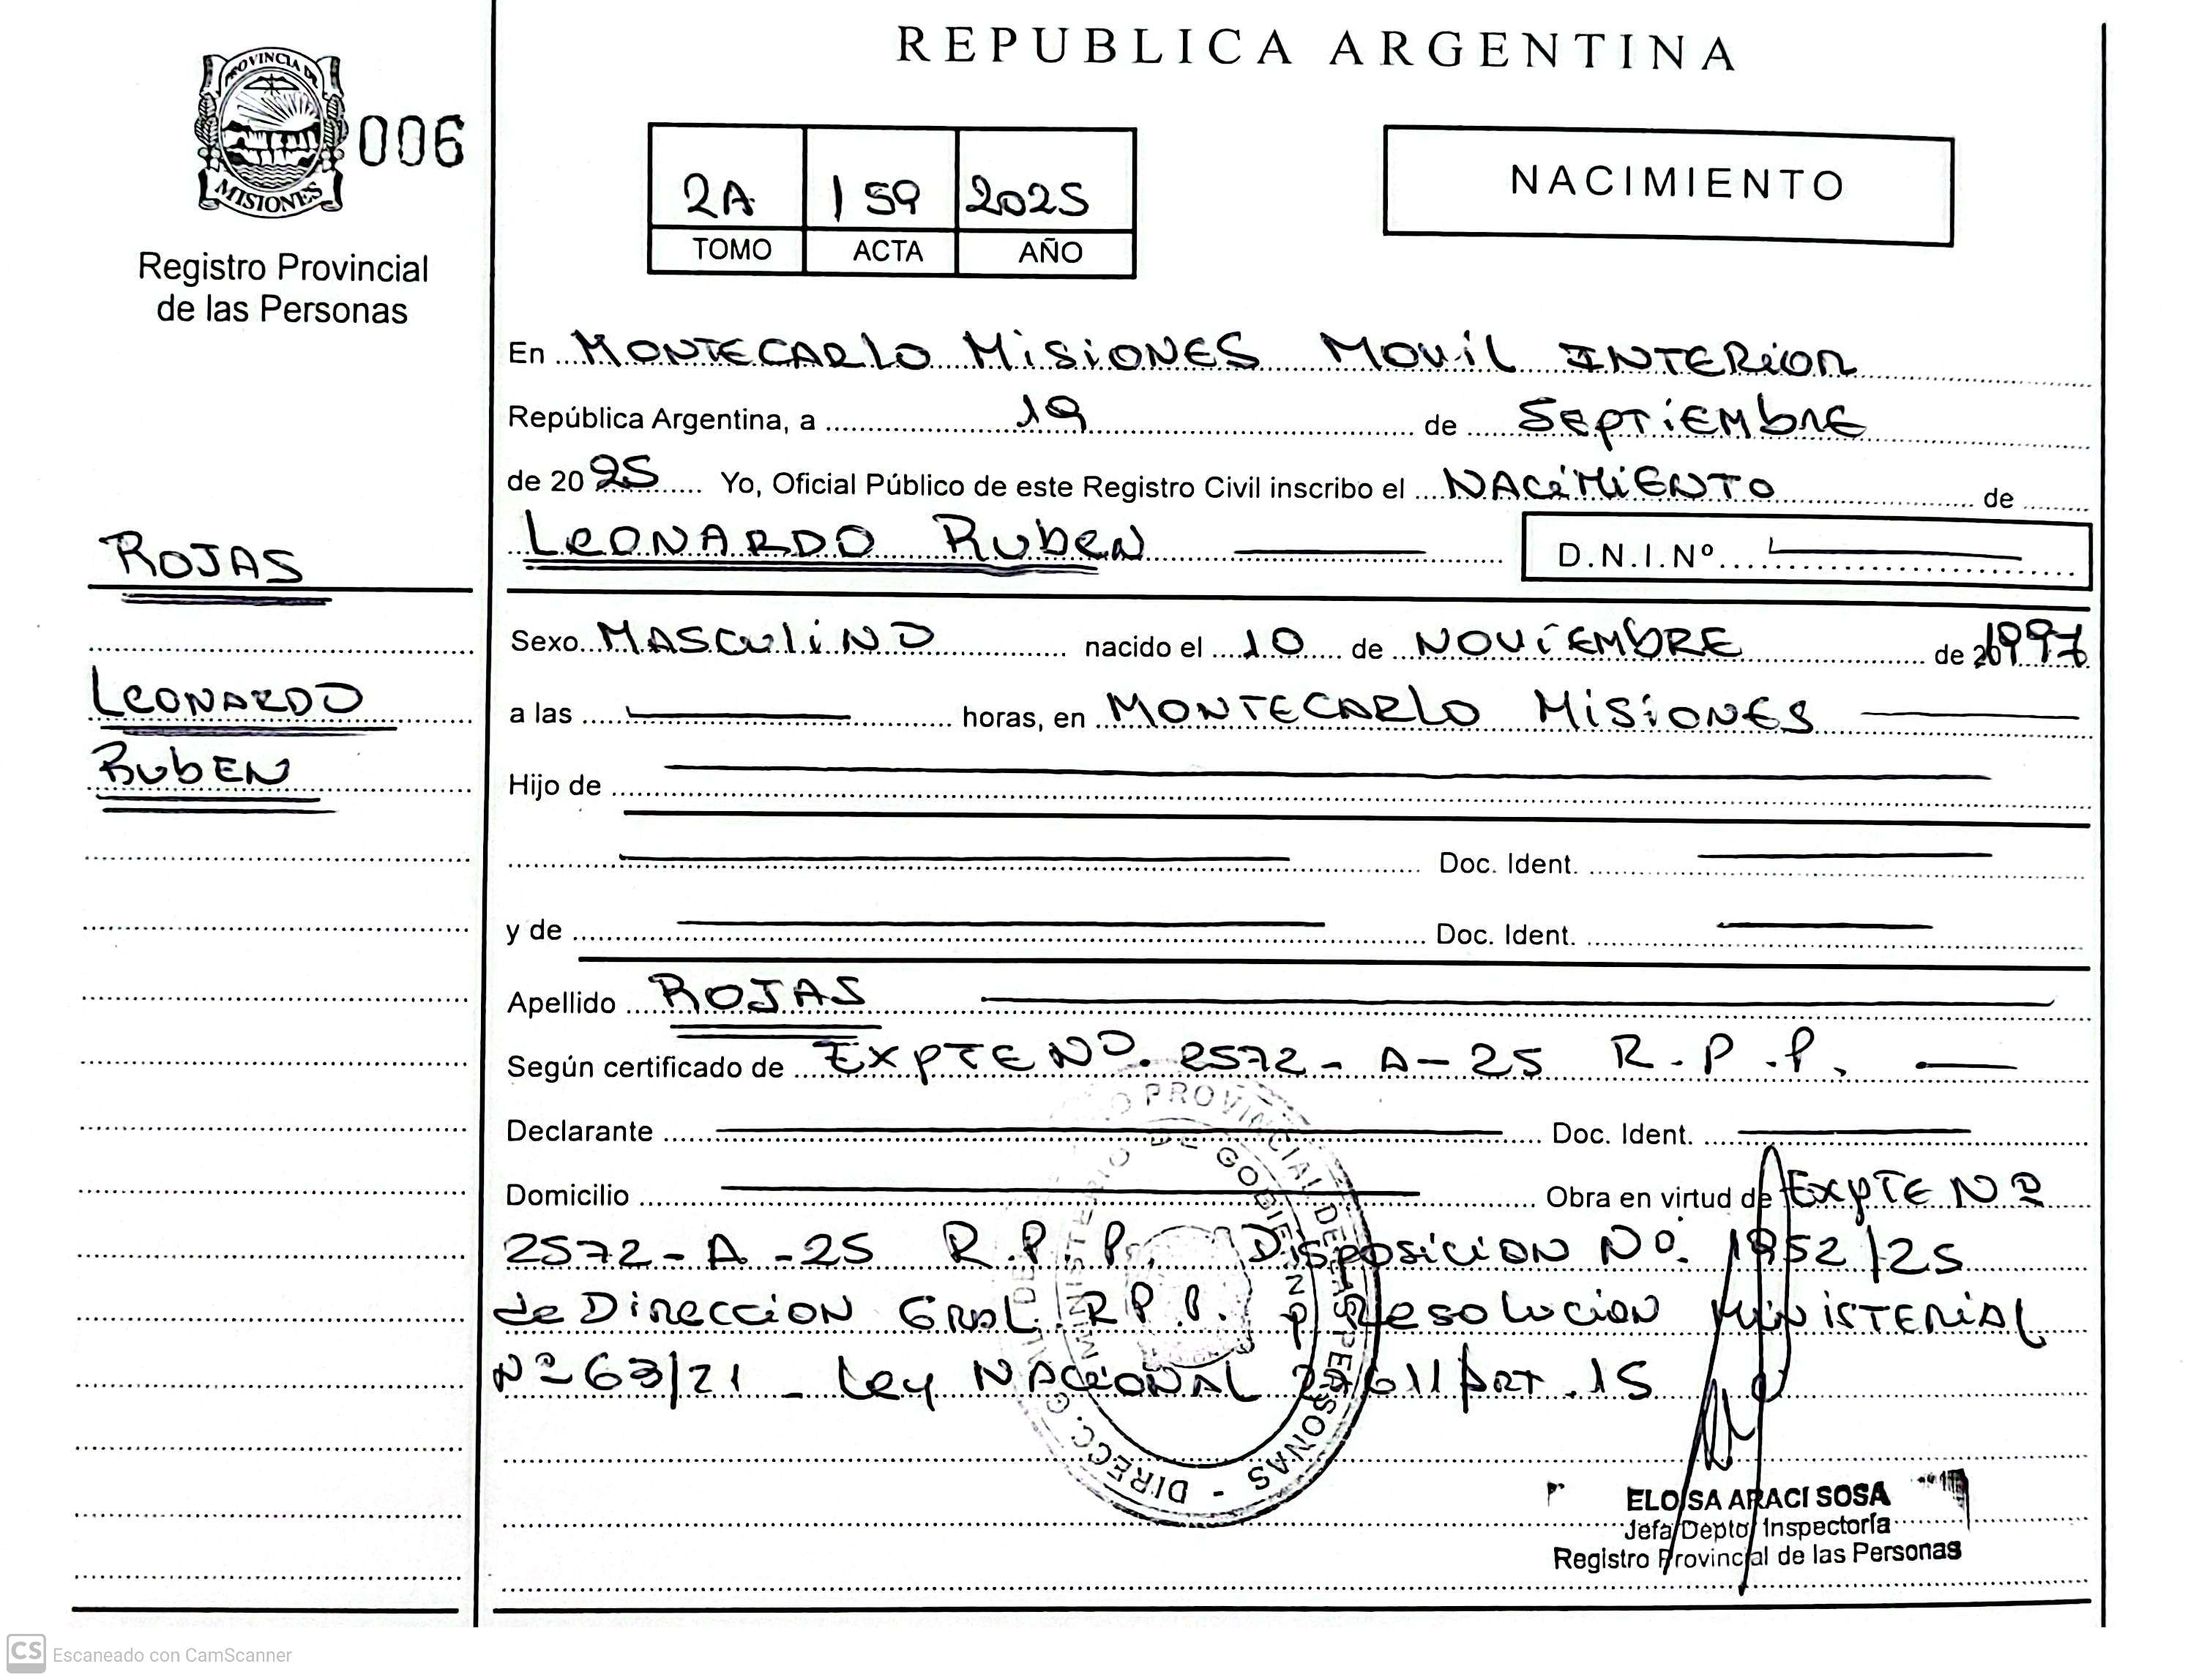 REPUBLICA ARGENTINA
PROVINCIA DE
MISIONES
006
Registro Provincial
de las Personas
2A 159 2025
TOMO ACTA AÑO
NACIMIENTO
En MONTECARLO MISIONES MOVIL INTERIOR
República Argentina, a 19 de SEPTIEMBRE
de 20 25 Yo, Oficial Público de este Registro Civil inscribo el NACIMIENTO de
LEONARDO RUBEN D.N.I.Nº
ROJAS
LEONARDO
RUBEN
Sexo MASCULINO nacido el 10 de NOVIEMBRE de 1997
a las horas, en MONTECARLO MISIONES
Hijo de
Doc. Ident.
y de Doc. Ident.
Apellido ROJAS
Según certificado de EXPTE Nº. 2572-A-25 R.P.P.
Declarante Doc. Ident.
Domicilio Obra en virtud de EXPTE Nº
2572-A-25 R.P.P. DISPOSICION Nº. 1952/25
de DIRECCION GRAL. R.P.P. RESOLUCION MINISTERIAL
Nº 63/21 - Ley NACIONAL ART. 15
ELOISA ARACI SOSA
Jefa Depto. Inspectoría
Registro Provincial de las Personas
CS Escaneado con CamScanner